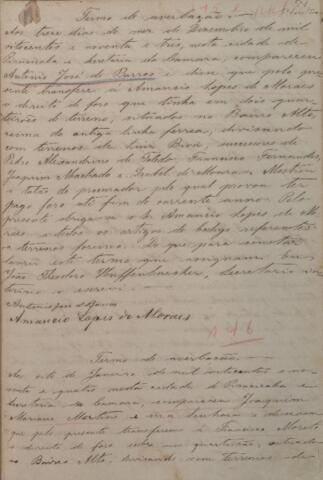 Termo de averbação.
Aos treze dias do mez de Dezembro de mil
oitocentos e noventa e tres, nesta cidade de
Piracicaba e secretaria da Camara, compareceu
Antonio José de Barros e disse que pelo pre
sente transfere á Amancio Lopes de Moraes
o direito de foro que tinha em dois quar
teirões de terreno, situados no Bairro Alto,
acima da antiga linha ferrea, divisando
com terrenos de Luiz successores de
Pedro Alexandrino de Toledo, Francisco Fernandes,
Joaquim Machado e Izabel de Moura. Mostrou
o talão do procurador pelo qual provou ter
pago foro até fim do corrente anno. Pelo
presente obriga-se o sr. Amancio Lopes de Mo
raes a todos os artigos do codigo referentes
a terrenos foreiros. Do que para constar
lavrei este termo que assignam. Eu
João Theodoro secretario in
terino o escrevi.
Antonio José de Barros
Amancio Lopes de Moraes
146
Termo de averbação.
Aos oito de Janeiro de mil oitocentos e no
venta e quatro nesta cidade de Piracicaba e
secretaria da Camara, compareceu Joaquim
Mariano Martins e sua senhora e disseram
que pelo presente transferem á Francisco Moreto
o direito de foro sobre quarteirão, situado
no Bairro Alto, divisando com terrenos de